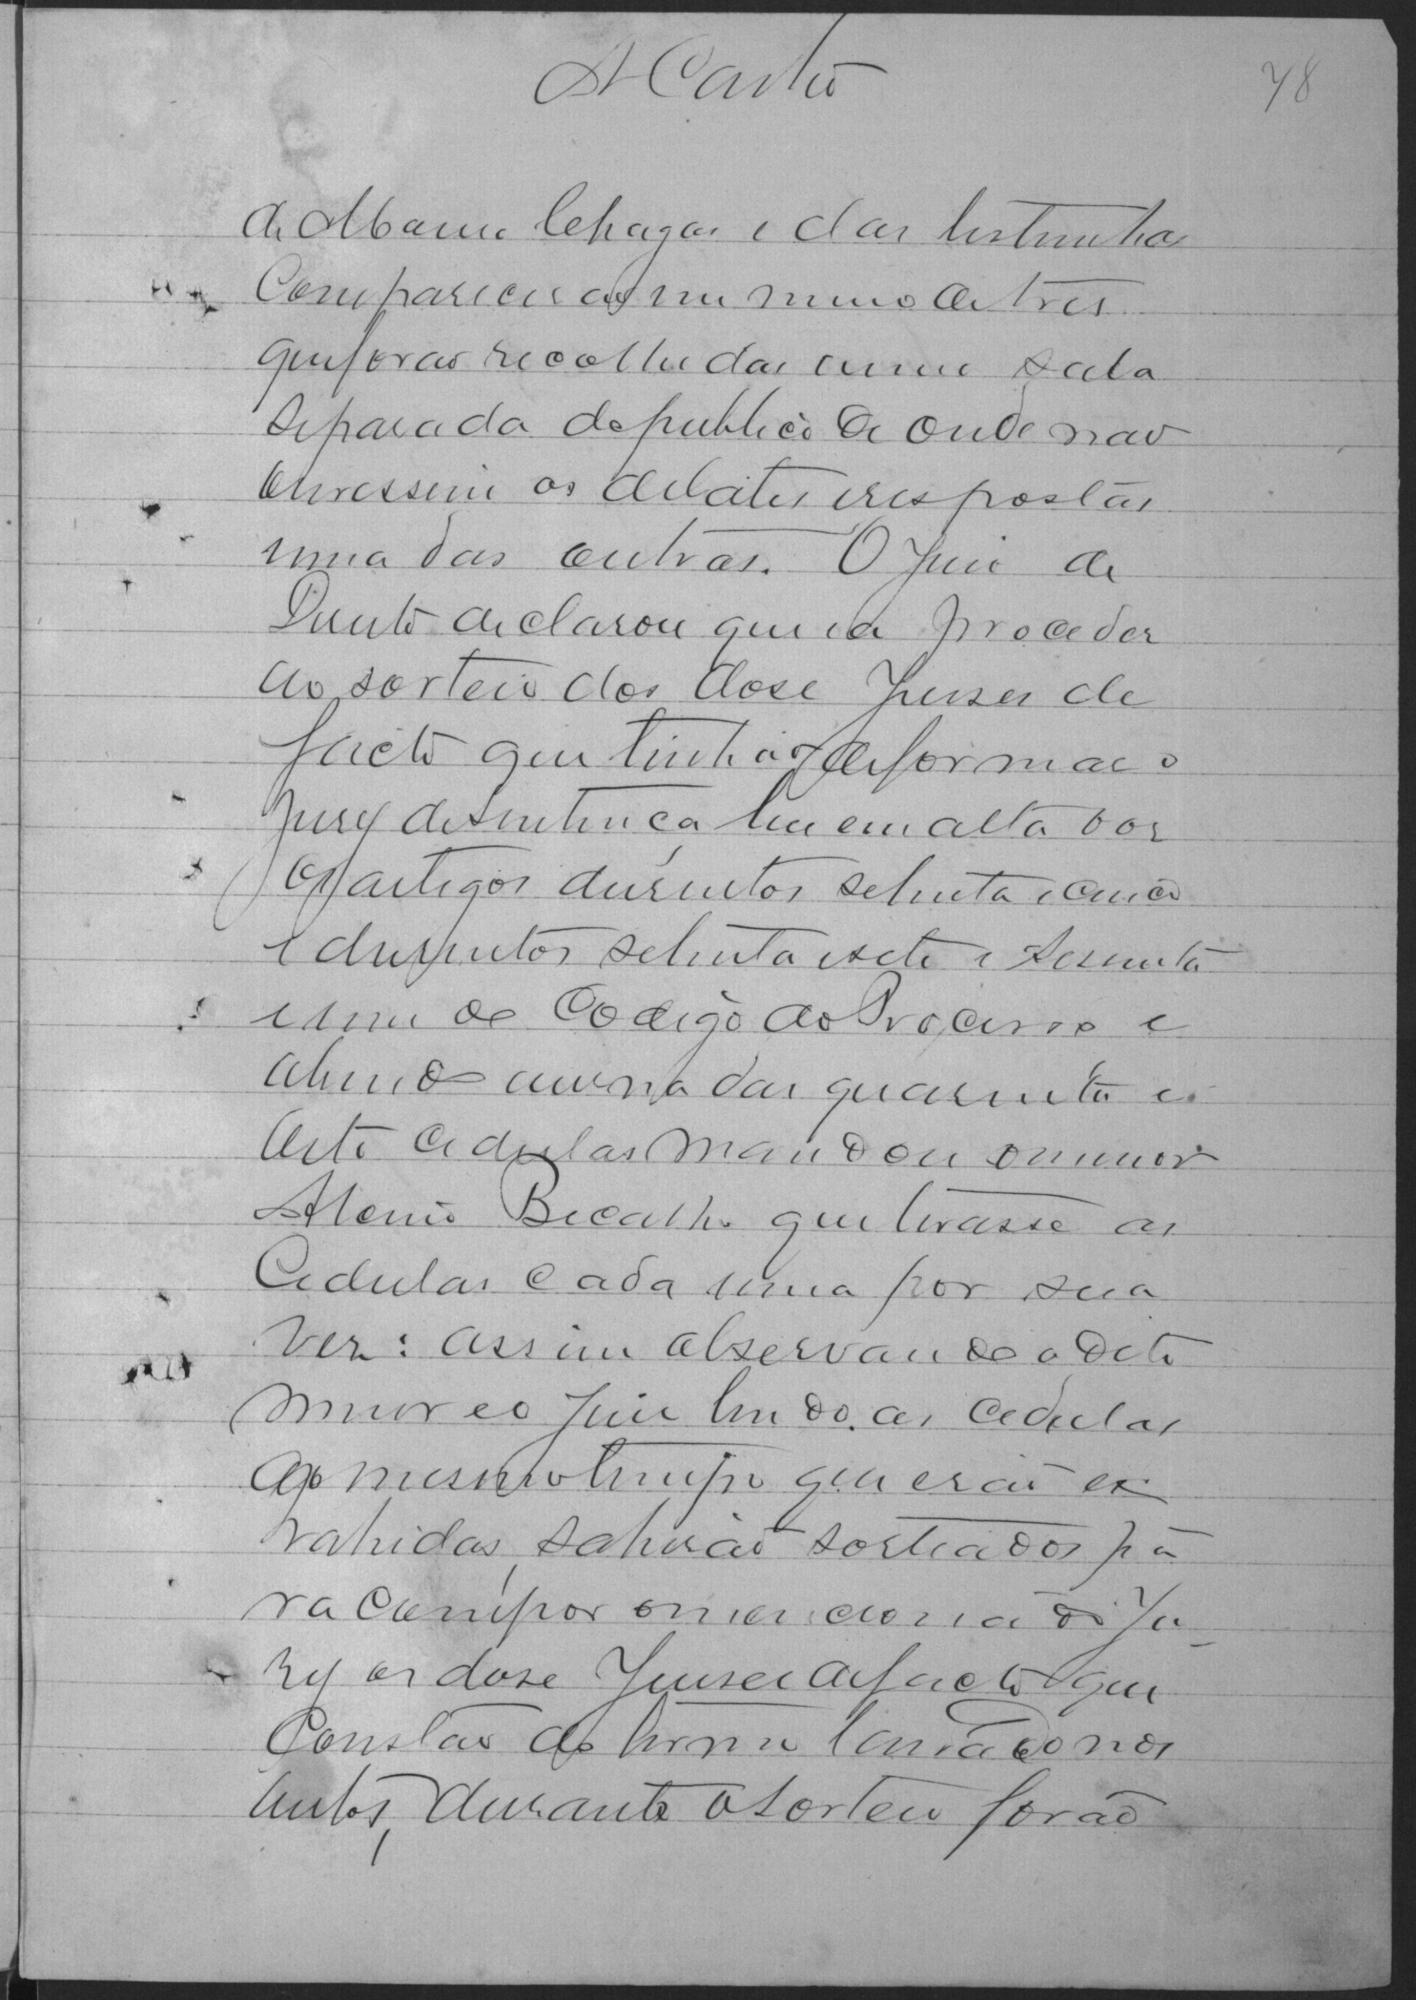 A Castro
78
de Chagas e das testemunhas
Comparecerão numero de tres
que forão recolhidas em uma sala
separada do publico de onde não
ouvissem os debates e respostas
uma das outras. O Juiz de
Direito declarou que ia proceder
ao sorteio dos dose Juises de
facto que tinhão de formar o
Jury de Sentença leu em alta vos
os artigos dusentos setenta e cinco
e dusentos setenta e sete e sessenta
e um do Codigo do Processo e
abrindo a urna das quarenta e
sete cedulas mandou o menor
Bicalho que tirasse as
Cedulas cada uma por sua
vez: assim observando o dito
menor e o Juiz lendo as cedulas
ao mesmo tempo que erão ex
trahidas, sahirão sorteados pa
ra compor o mencionado Ju_
ry os dose Juises de facto que
Constão do termo lançado nos
autos, durante o Sorteio forão